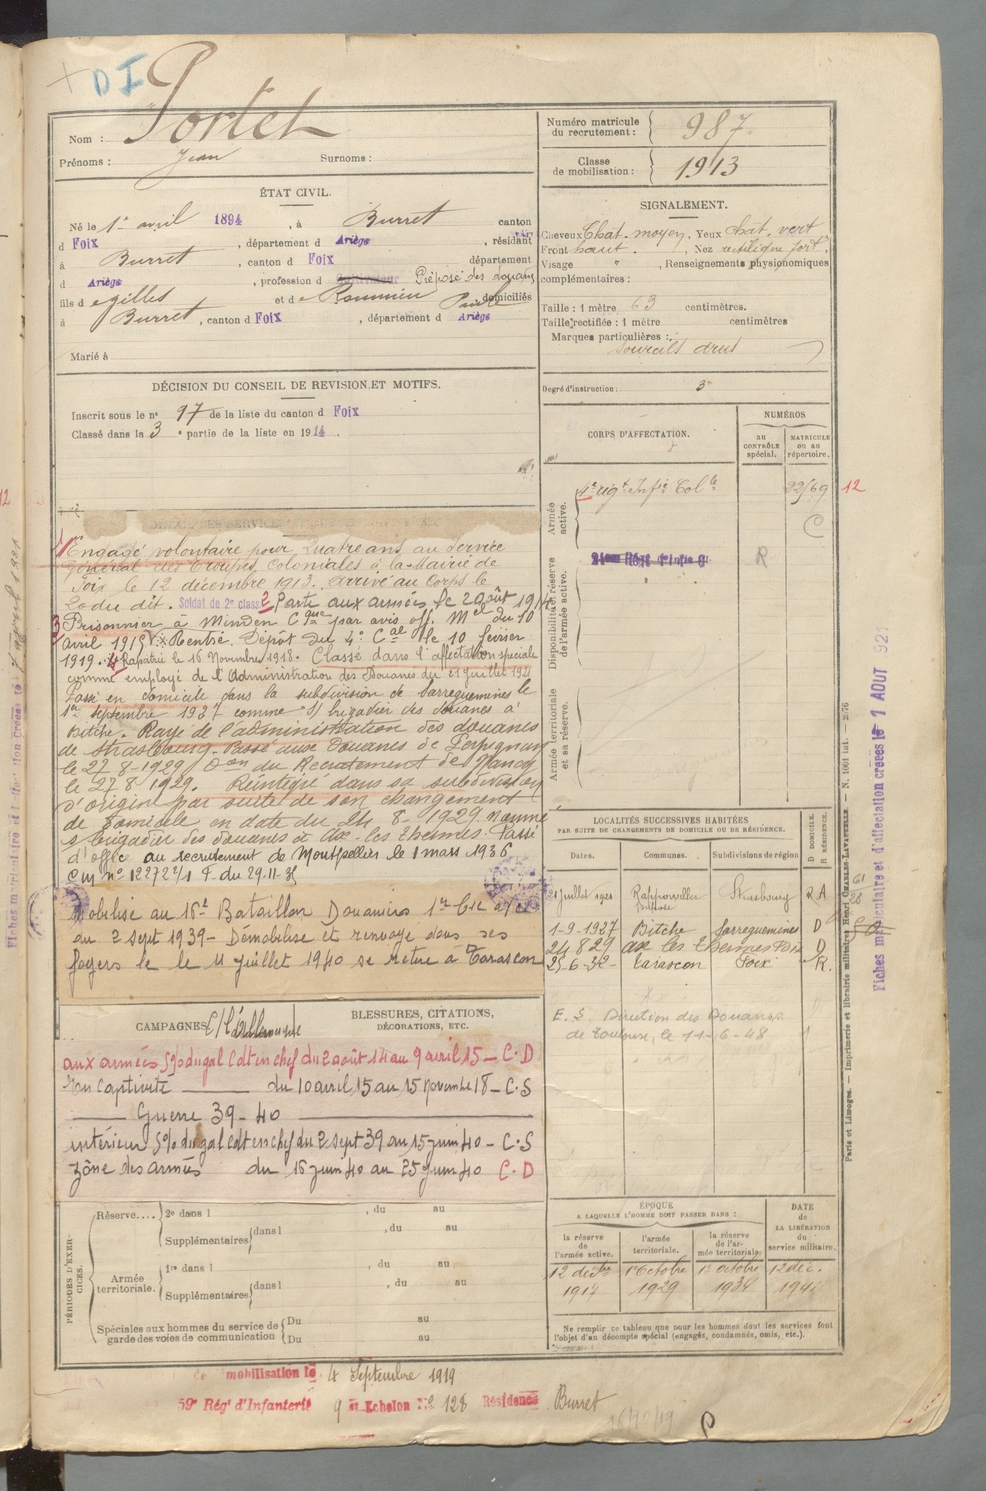 D I
Nom : Portet
Prénoms : Jean Surnoms :
Numéro matricule du recrutement : 987
Classe de mobilisation : 1913
ÉTAT CIVIL.
Né le 1er avril 1894, à Burret canton
d Foix, département d Ariège, résidant
à Burret, canton d Foix département
d Ariège, profession d Cultivateur Préposé des douanes
fils de Gilles et de Roumieu Paule domiciliés
à Burret, canton d Foix, département d Ariège
Marié à
SIGNALEMENT.
Cheveux Chat. moyen, Yeux chât. vert
Front haut. , Nez rectiligne fort.
Visage " , Renseignements physionomiques
complémentaires :
Taille : 1 mètre 63 centimètres.
Taille rectifiée : 1 mètre centimètres
Marques particulières :
sourcils drus
Degré d'instruction : 3
DÉCISION DU CONSEIL DE REVISION ET MOTIFS.
Inscrit sous le n° 97 de la liste du canton d Foix
Classé dans la 3e partie de la liste en 1914.
Engagé volontaire pour Quatre ans, au Service
Général des Troupes Coloniales à la Mairie de
Foix le 12 décembre 1913. Arrivé au Corps le
20 du dit. Soldat de 2e classe 2 Parti aux armées le 2 août 1914
3 Prisonnier à Minden Cque par avis off. Mel du 10
avril 1915. Rentré. Dépôt du 4e Cal le 10 février
1919. 4 Rapatrié le 16 Novembre 1918. Classé dans l'affectation spéciale
comme employé de l'Administration des Douanes du 21 juillet 1921
Passé en domicile dans la subdivision de Sarreguemines le
1er septembre 1927 comme S/ brigadier des douanes à
Bitche. Rayé de l'administration des douanes
de Strasbourg. Passé aux Douanes de Perpignan
le 27-8-1929 Don du Recrutement de Nancy
le 27 8-1929. Réintégré dans sa subdivision
d'origine par suite de son changement
de domicile en date du 24-8-1929. Nommé
s/brigadier des douanes à Ax-les-Thermes. Passé
d'office au recrutement de Montpellier le 1 mars 1936
Cm n° 12272 2/1 F. du 29-11-35
Mobilisé au 16e Bataillon Douaniers 1re Cie
au 2 Sept 1939 - Démobilisé et renvoyé dans ses
foyers le le 11 Juillet 1940 se retire à Tarascon
CAMPAGNES C/ l'Allemagne
BLESSURES, CITATIONS, DÉCORATIONS, ETC.
aux armées S/o du gal Cdt en chef du 2 août 14 au 9 avril 15 - C.D
En captivité du 10 avril 15 au 15 Novembre 18 - C.S
Guerre 39-40
intérieur S/o du gal Cdt en chef du 2 sept 39 au 15 juin 40 - C.S
Zône des armées du 16 juin 40 au 25 juin 40 C.D
CORPS D'AFFECTATION.
NUMÉROS
au CONTRÔLE spécial.
MATRICULE ou au répertoire.
Armée active.
4e régt Infie Colle 22/69 12
C
Disponibilité et réserve de l'armée active.
R
Armée territoriale et sa réserve.
LOCALITÉS SUCCESSIVES HABITÉES
PAR SUITE DE CHANGEMENTS DE DOMICILE OU DE RÉSIDENCE.
Dates. Communes. Subdivisions de région D DOMICILE. R RÉSIDENCE.
21 juillet 1921 Strasbourg R A
1-9-1927 Bitche Sarreguemines D
24 8 29 Ax les Thermes Foix D
Tarascon Foix R.
E. S. Direction des Douanes
de Toulouse, le 11-6-48
PÉRIODES D'EXERCICES.
Réserve.... 2e dans l , du au
Supplémentaires dans l , du au
Armée territoriale. 1re dans l , du au
Supplémentaires dans l , du au
Spéciales aux hommes du service de garde des voies de communication Du au
Du au
ÉPOQUE
A LAQUELLE L'HOMME DOIT PASSER DANS :
la réserve de l'armée active. l'armée territoriale. la réserve de l'armée territoriale.
DATE de LA LIBÉRATION du service militaire.
12 décbre 1er octobre 1er octobre 12 déc.
1917 1929 1934
Ne remplir ce tableau que pour les hommes dont les services font
l'objet d'un décompte spécial (engagés, condamnés, omis, etc.).
mobilisation le 4 Septembre 1919
59e Régt d'Infanterie 9 Echelon N° 128 Résidence Burret
Paris et Limoges. — Imprimerie et librairie militaires Henri CHARLES-LAVAUZELLE.
Fiches matriculaire et d'affectation créées le 7 AOUT 921